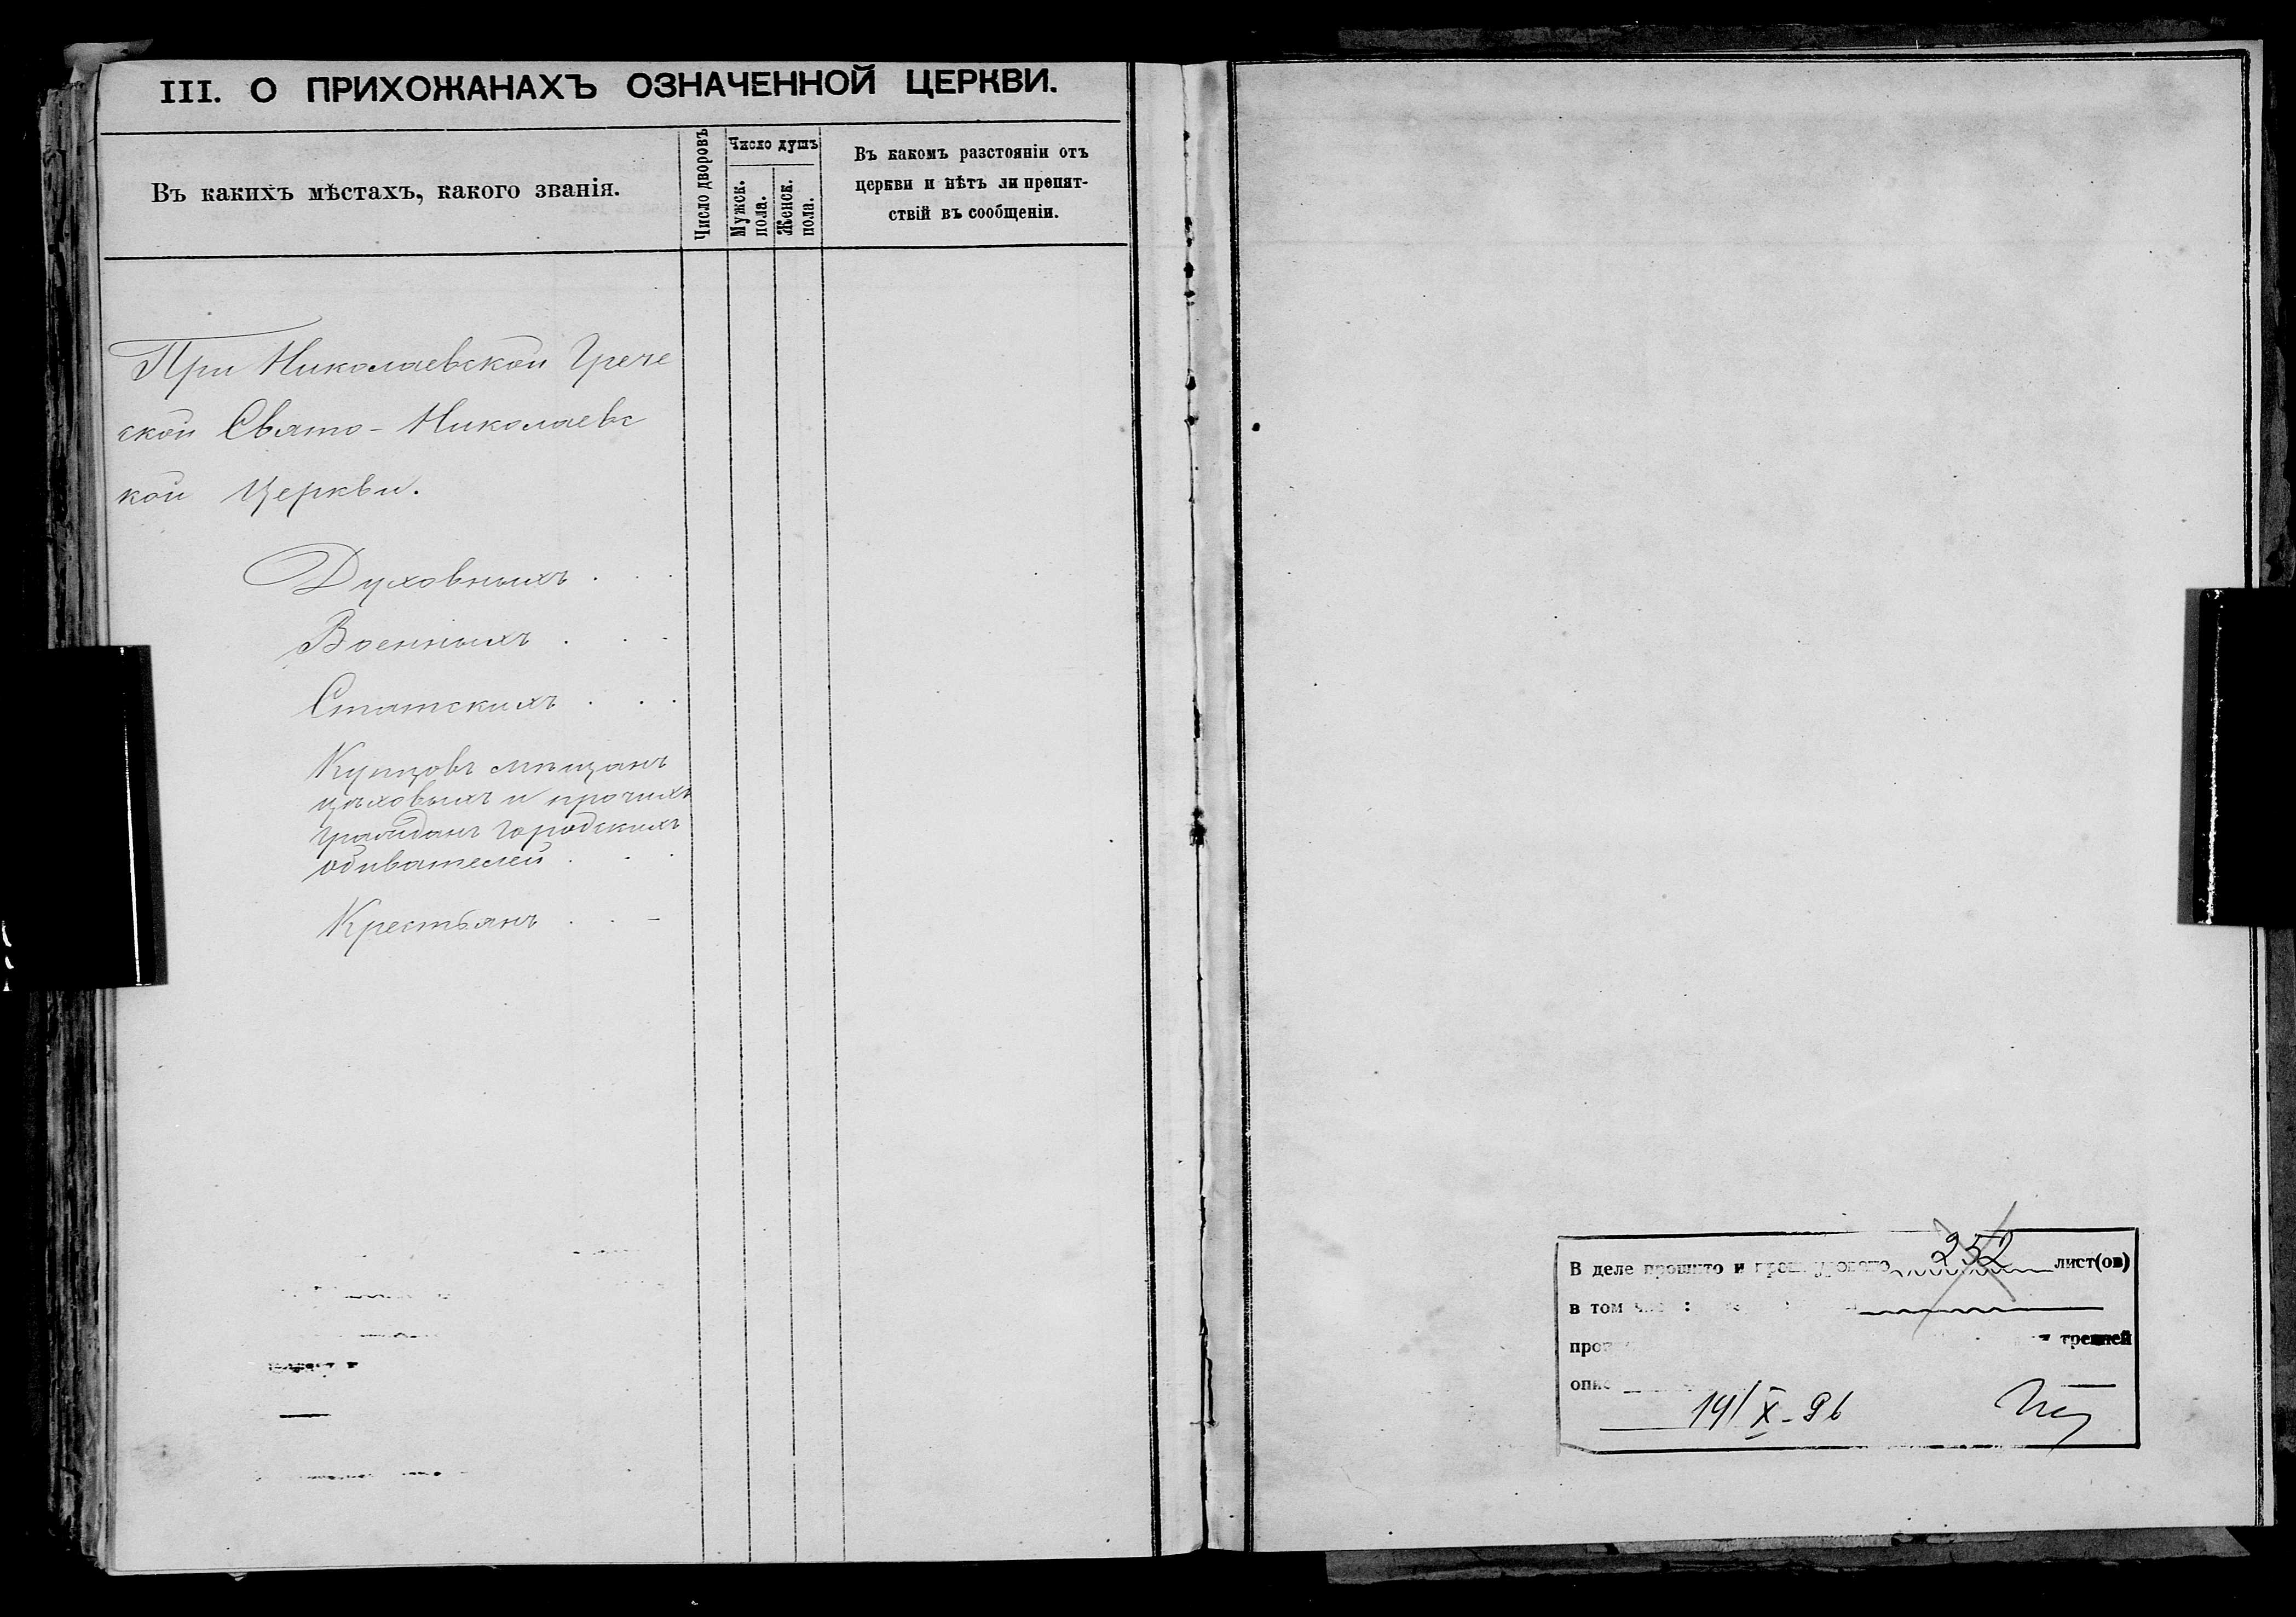 III. О ПРИХОЖАНАХЪ ОЗНАЧЕННОЙ ЦЕРКВИ.
Въ какихъ мѣстахъ, какого званія.
Число дворовъ
Число душъ
Мужск. пола.
Женск. пола.
Въ какомъ разстояніи отъ
церкви и нѣтъ ли препят-
ствій въ сообщеніи.
При Николаевской Грече
ской Свято-Николаевс
кой Церкви.
Духовныхъ . . .
Военныхъ . . .
Статскихъ . . .
Купцовъ мѣщанъ
цѣховыхъ и прочихъ
граждан городскихъ
обивателей . . .
Крестьянъ . . -
В деле прошито и 252 лист(ов)
в том
14/X-96